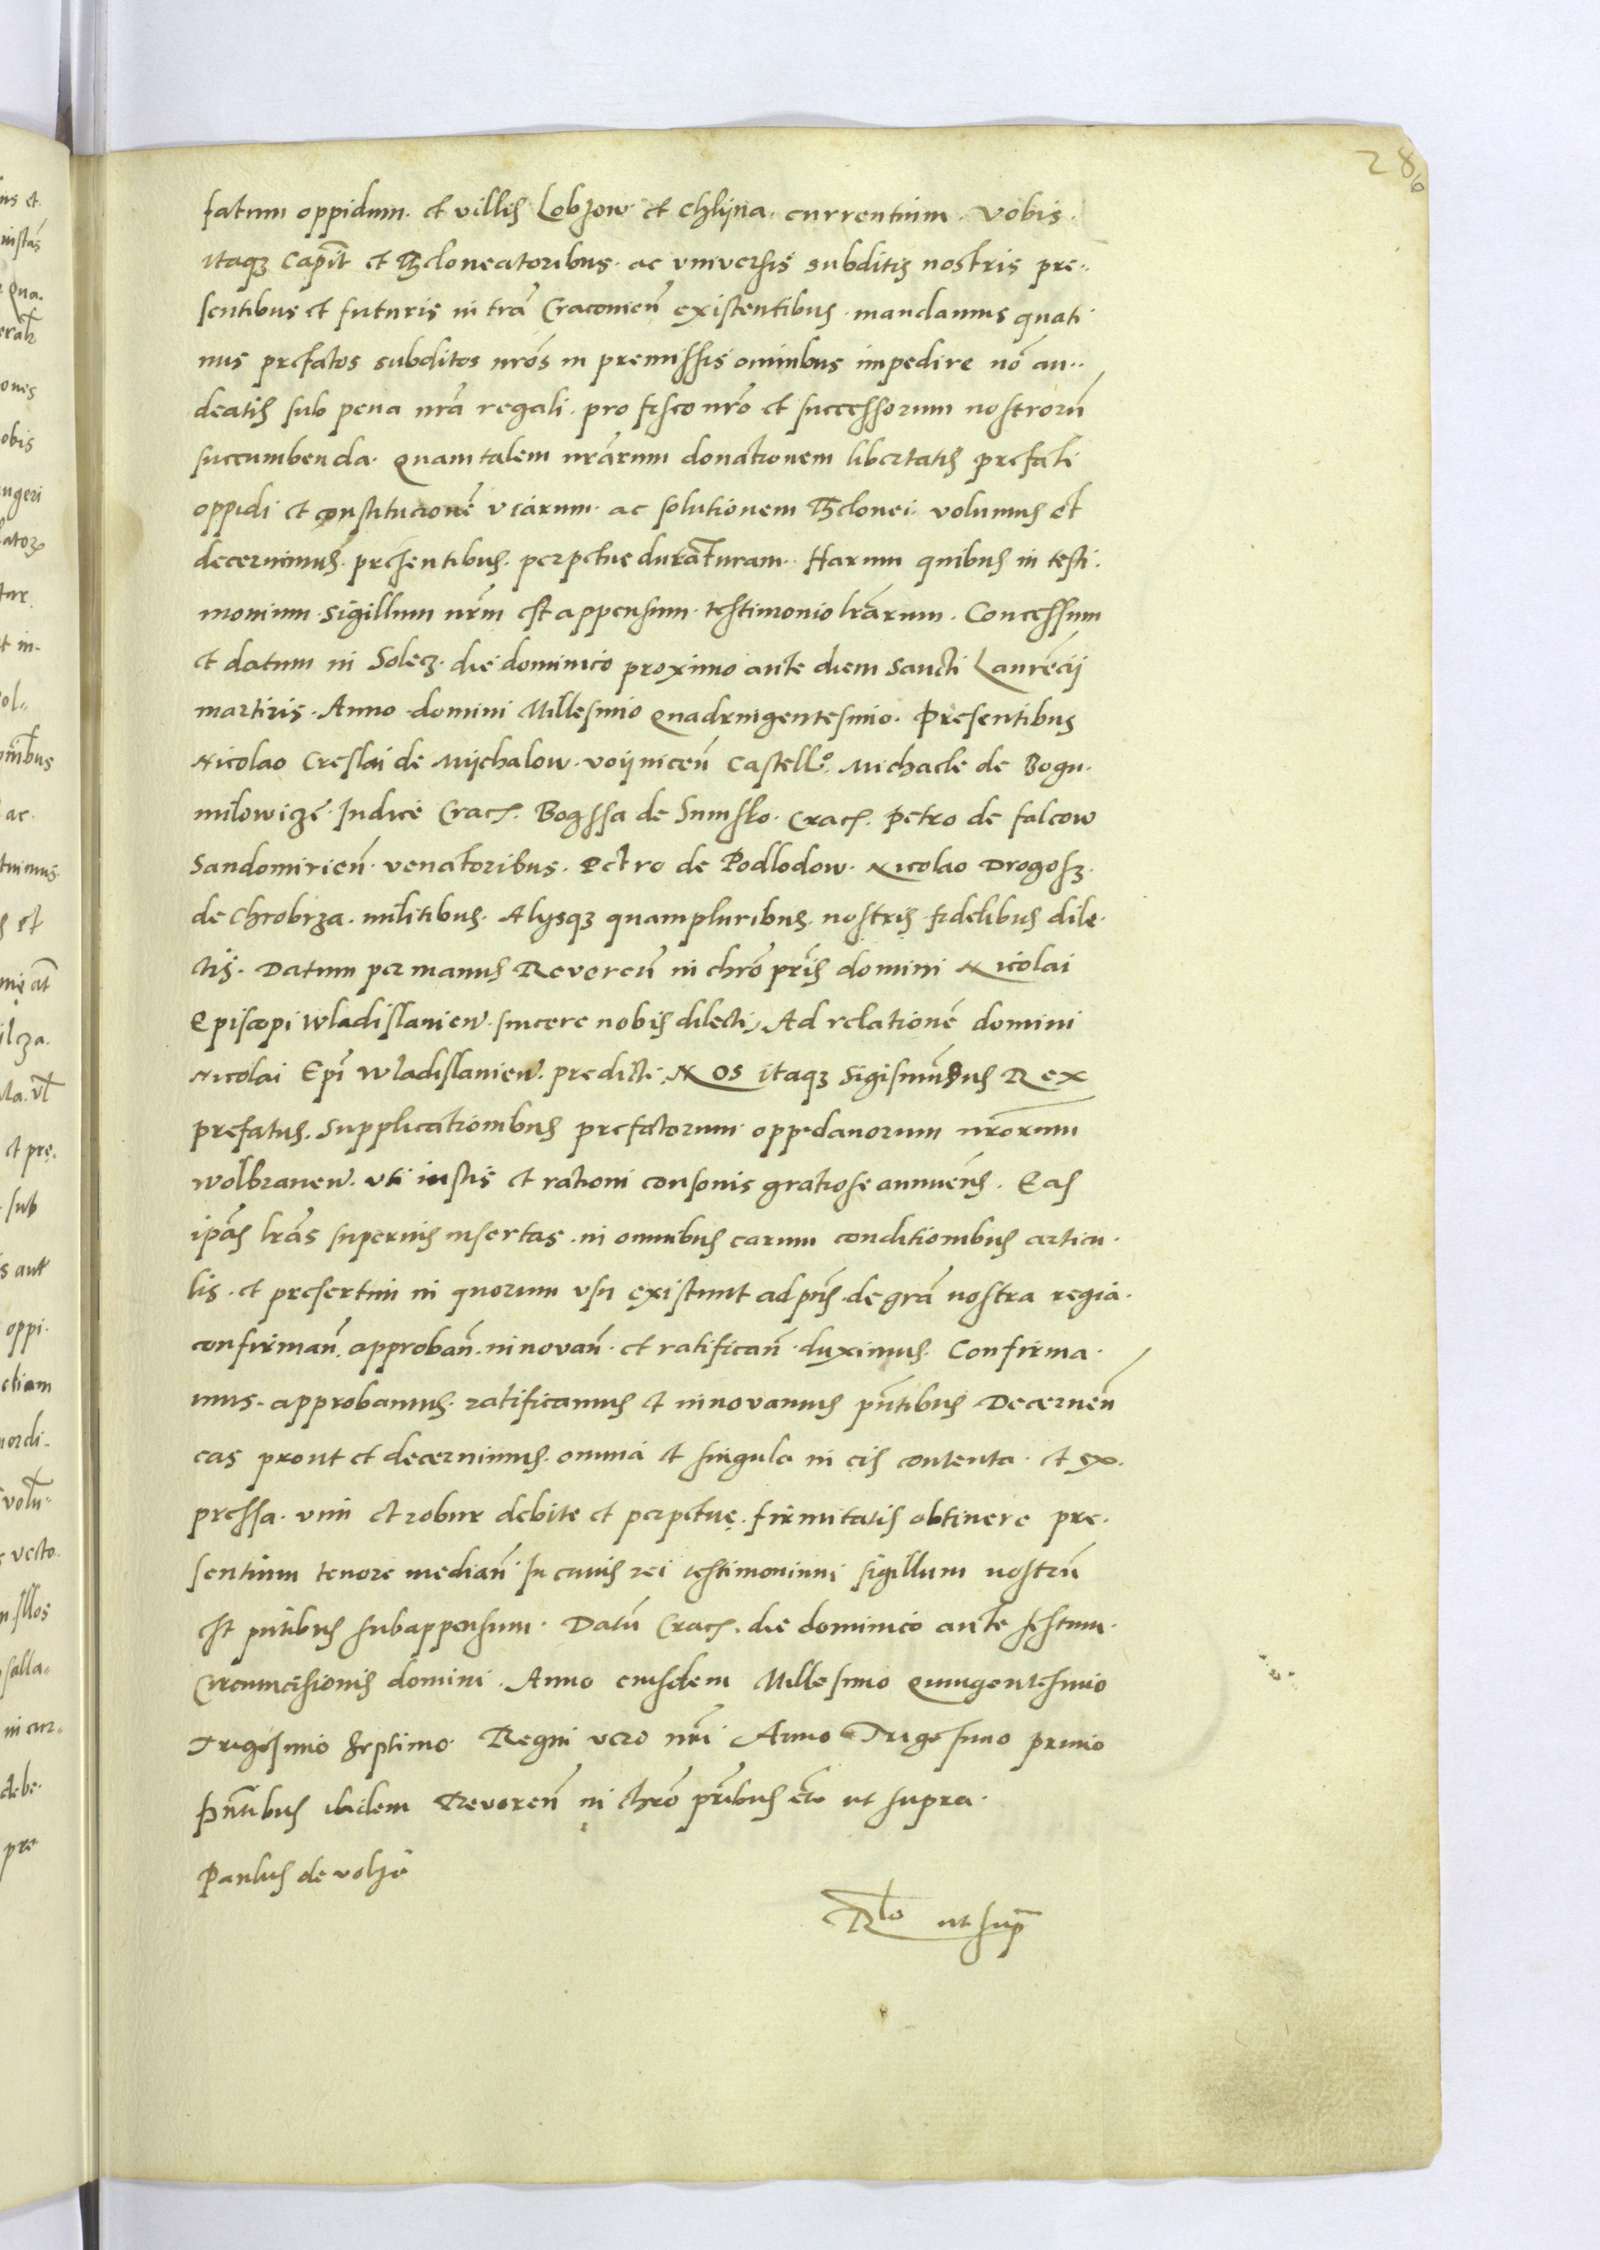 286
fatum oppidum. et villis Lobzow et Chlyna. currentium. Vobis.
itaqȝ Capit̄ et Theloneatoribus. ac vniversis subditis nostris pre..
sentibus et futuris in trā Cracovieñ existentibus. mandamus quati
nus prefatos subditos nr̄os in premissis omnibus impedire nō au..
deatis sub pena nr̄a regali. pro fisco nr̄o et successorum nostrorū
succumbenda. Quam talem nr̄arum donationem libertatis prefati
oppidi et constitucionē viarum. ac solutionem Thelonei. volumus et
decernimus. presentibus. perpetue duraturam. Harum quibus in testi.
monium. sigillum nr̄m est appensum. testimonio lr̄arum. Concessum
et datum in Solecz. die dominico proximo ante diem Sancti Laurēcij
martiris. Anno domini Millesimo Quadringentesimo. Presentibus
Nicolao Creslai de Mychalow. voyniceñ Castell̊. Michaele de Bogu.
milowicze. Iudice Crac̄. Bogssa de Crac̄. Petro de Falcow
Sandomirieñ. venatoribus. Petro de Podlodow. Nicolao Drogosz.
de Chrobrza. militibus. Alysqȝ quampluribus. nostris fidelibus dile.
ctis. Datum per manus Revereñ in chrō pr̄is domini Nicolai
Episcopi Wladislavien̄. sincere nobis dilecti, Ad relationē domini
Nicolai Epī Wladislavien̄. predicti. Nos itaqȝ Sigismūdus Rex
prefatus. Supplicationibus prefatorum oppidanorum nr̄orum
Wolbramen̄. uti iustis et rationi consonis gratiose annuen̄s. Eas
ip̄as lr̄as superius insertas. in omnibus earum conditionibus articu.
lis. et presertim in quorum vsu existunt ad pn̄s. de grā nostra regia.
confirmañ. approbañ. innovañ. et ratificañ. duximus. Confirma.
mus. approbamus. ratificamus et innovamus pn̄tibus Decerneñ
eas prout et decernimus. omnia et singula in eis contenta. et ex.
pressa. vim et robur debite et perpetuę. firmitatis obtinere pre.
sentium tenore mediañ In cuius rei testimonium sigillum nostrū
est pn̄tibus subappensum. Datū Crac̄. die dominico ante festum.
Circumcisionis domini. Anno eiusdem Millesimo Quingentesimo
Trigesimo Septimo. Regni vero nr̄i Anno Trigesimo primo
Pn̄tibus ibidem Revereñ in chrō pr̄ibus etc ut supra.
Paulus de
Rlo ut sup̄